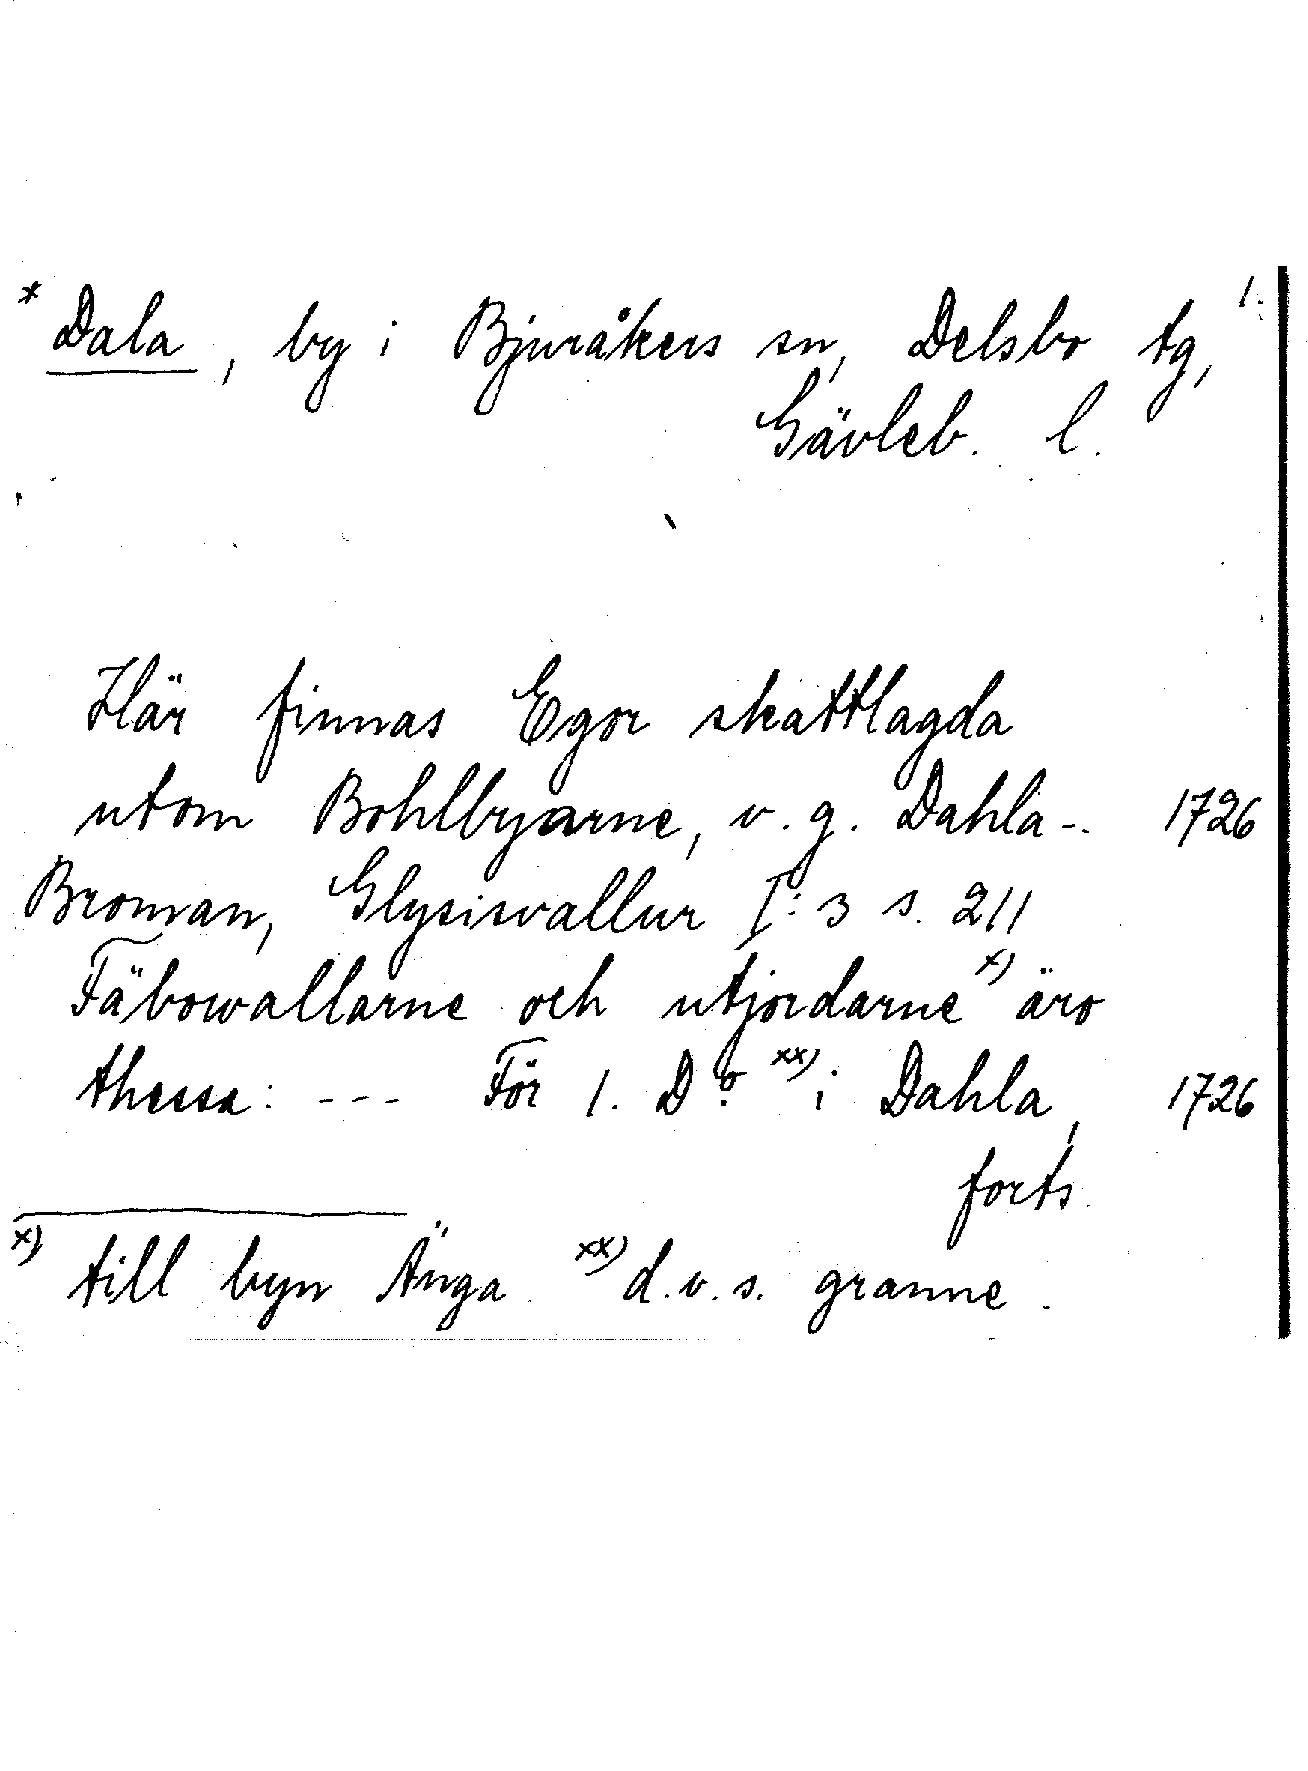 * Dala, by i Bjuråkers sn, Delsbo tg, 1.
Gävleb. l.
Här finnas Egor skattlagda
utom Bohlbyarne, v.g. Dahla -- 1726
Broman, Glysisvallur I:3 s. 211
Fäbowallarne och utjordarne x) äro
thessa: --- För 1. Do xx) i Dahla, 1726
forts.
x) till byn Änga. xx) d.v.s. granne.